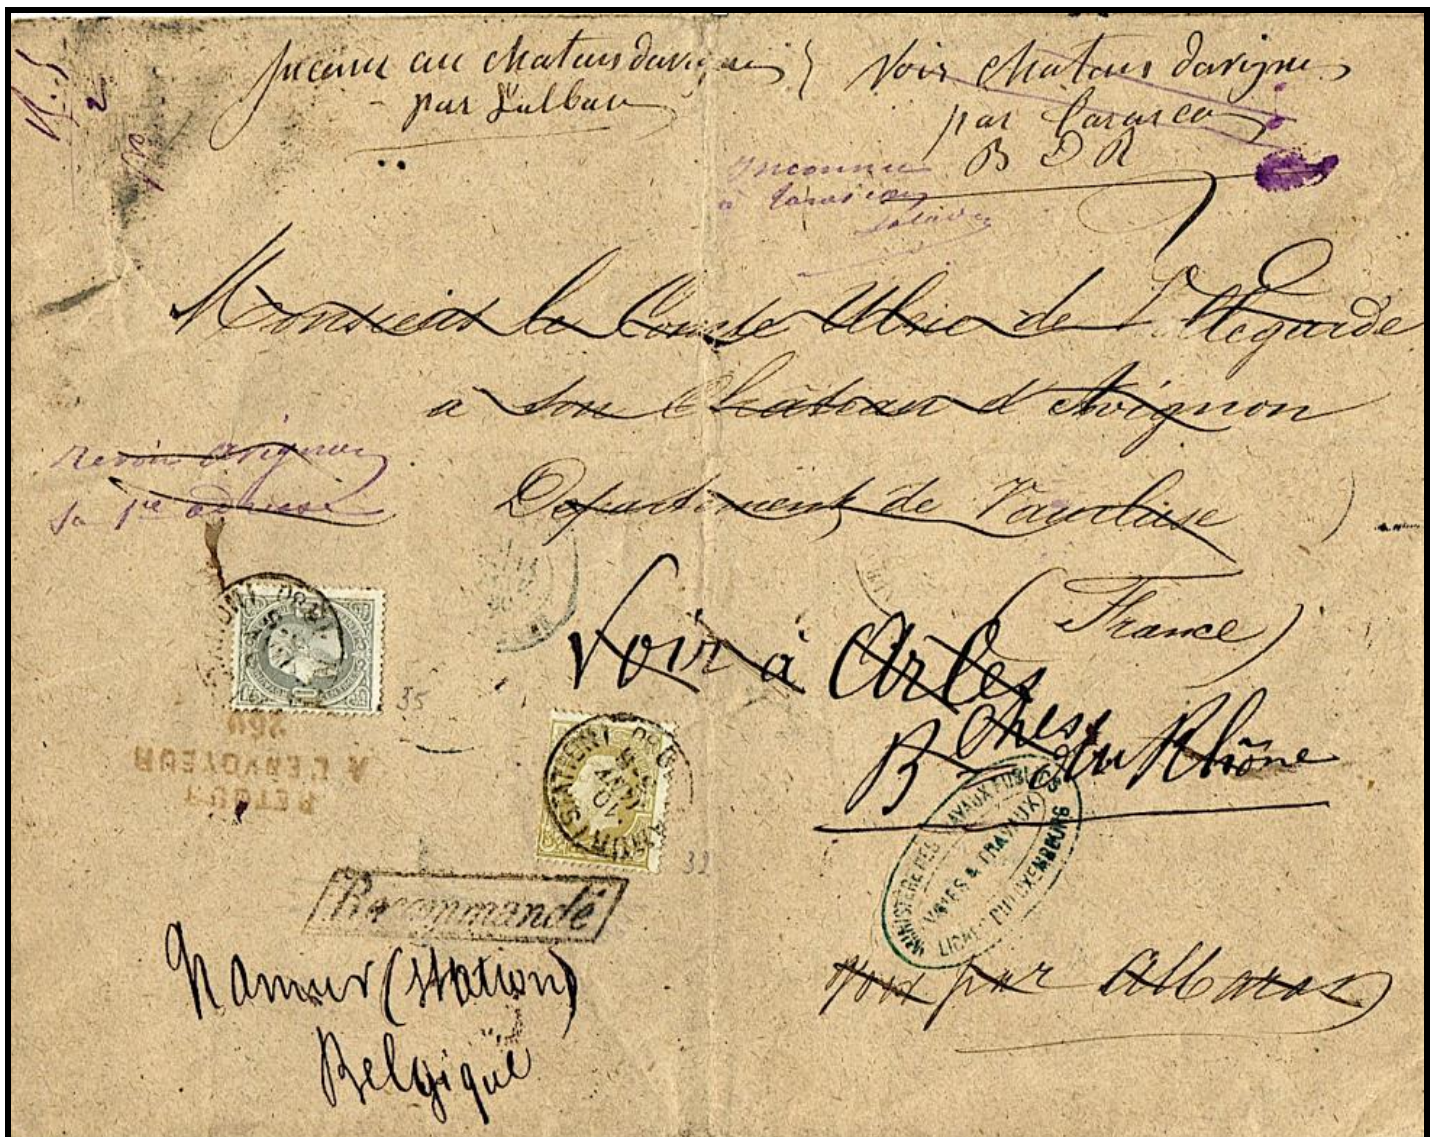 Inconnu au chateau d'avignon
par
Voir chateau d'avignon
par Tarascon
B D R
Inconnu
à Tarascon
Monsieur le Comte Ulric de
à son Château d'Avignon
revoir avignon
sa 1re adresse
Département de Vaucluse
France)
Voir à Arles
Bches du Rhône
35
32
RETOUR
A L'ENVOYEUR
MINISTÈRE DES TRAVAUX PUBLICS
VOIES & TRAVAUX
LIGNE DU LUXEMBOURG
Recommandé
Namur (Station)
Belgique
voir par Albaron